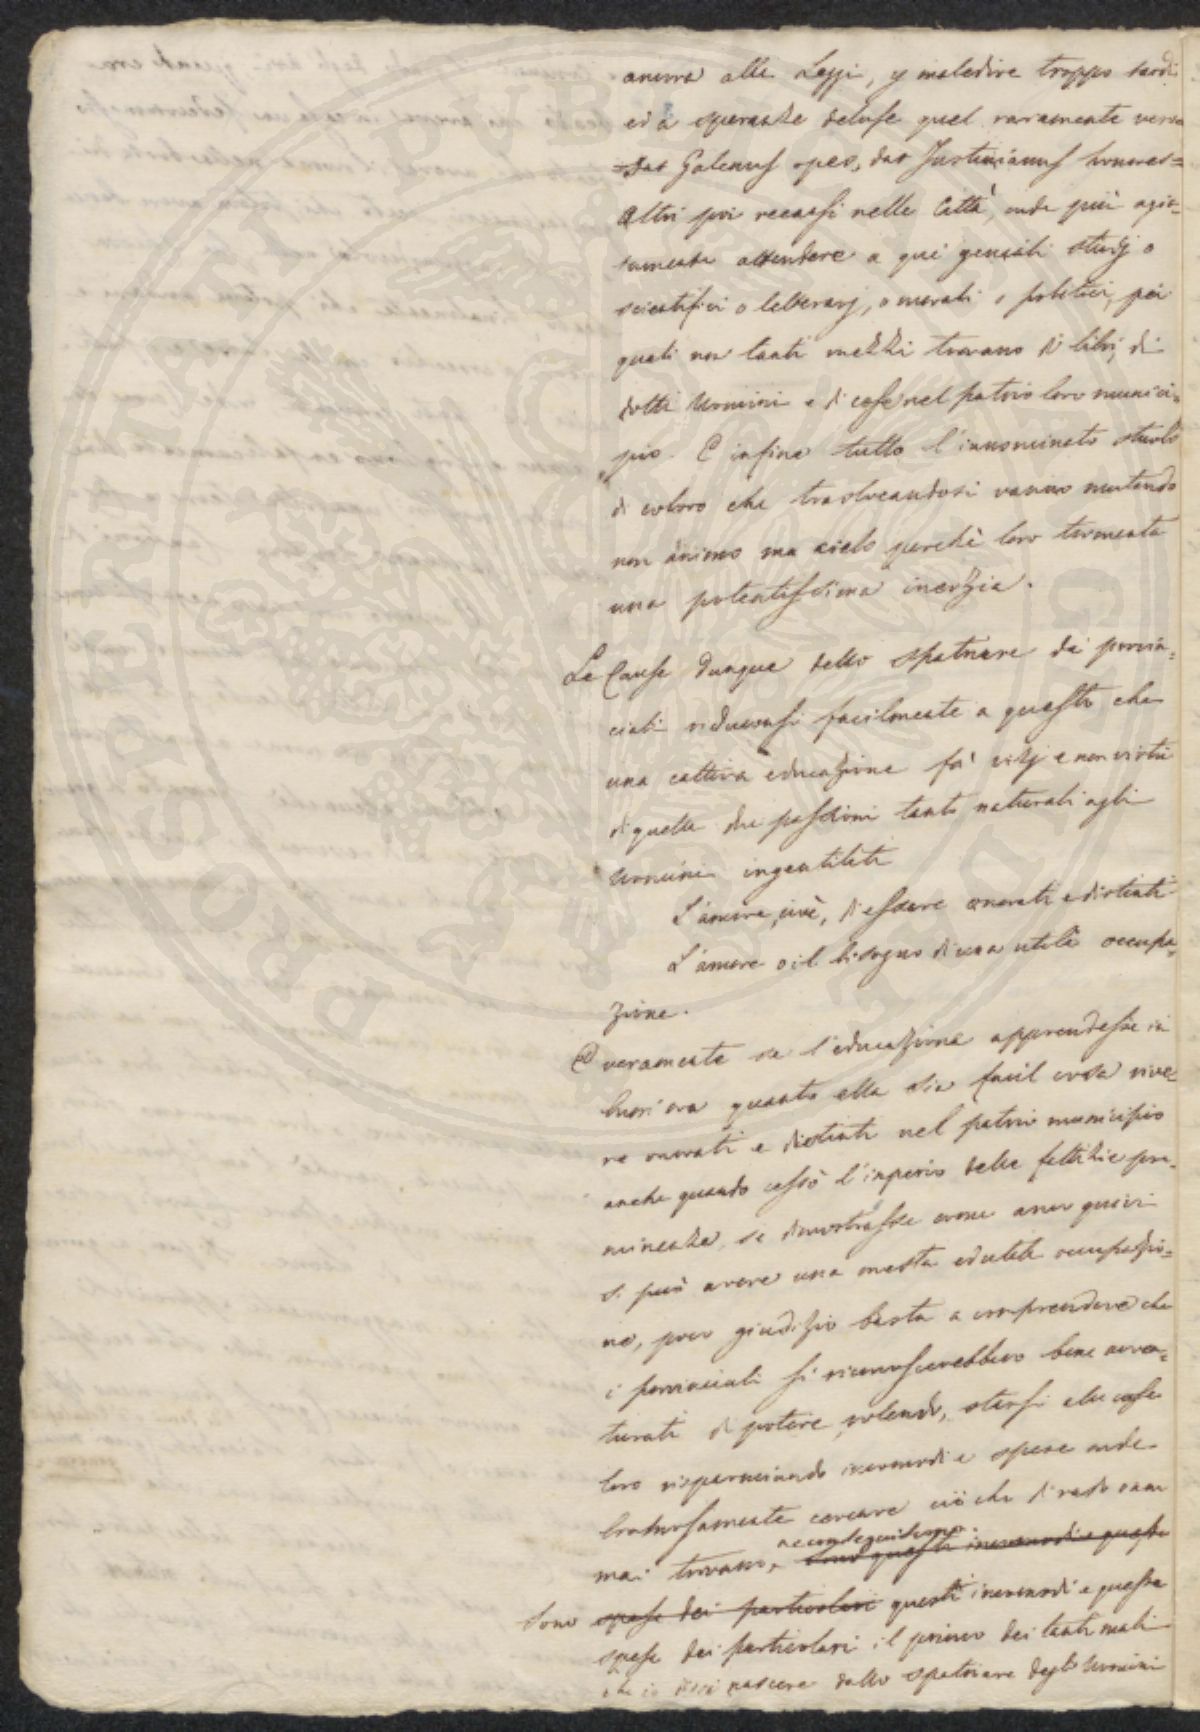 ancora alle Leggi, e maledire troppo tardi
ed a speranze deluse quel raramente vero
=Dat Galenus opes, dat Justinianus honores=
Altri poi recansi nelle Città, onde più agia=
tamente attendere a quei geniali studj o
scientifici o letterarj, o morali o politici, pei
quali non tanti mezzi trovano di libri, di
dotti Uomini e di cose nel patrio loro munici=
pio. E infine tutto l'innominato stuolo
di coloro che traslocandosi vanno mutando
non animo ma cielo perchè loro tormenta
una potentissima inerzia.
Le Cause dunque dello spatriare dei provin=
ciali riduconsi facilmente a questo che
una cattiva educazione fa vizj e non virtù
di quelle due passioni tanto naturali agli
Uomini ingentiliti
L'amore, cioè, di essere onorati e distinti
L'amore o il bisogno di una utile occupa=
zione.
E veramente se l'educazione apprendesse in
buon'ora quanto ella sia facil cosa vive
re onorati e distinti nel patrio municipio
anche quando cessò l'imperio delle fattizie pre=
minenze, se dimostrasse come anco quivi
si può avere una onesta ed utile occupazio=
ne, poco giudizio basta a comprendere che
i provinciali si riconoscerebbero bene avven=
turati di potere, volendo, starsi alle case
loro risparmiando incomodi e spese onde
cercare ciò che di rado o mai
mai trovano, questi incomodi e queste
Sono spese dei particolari questi incomodi e queste
spese dei particolari il primo dei tanti mali
che io dissi nascere dallo spatriare degli Uomini